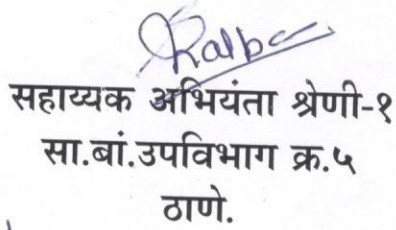 सहाय्यक अभियंता श्रेणी-१
सा.बां.उपविभाग क्र.५
ठाणे.